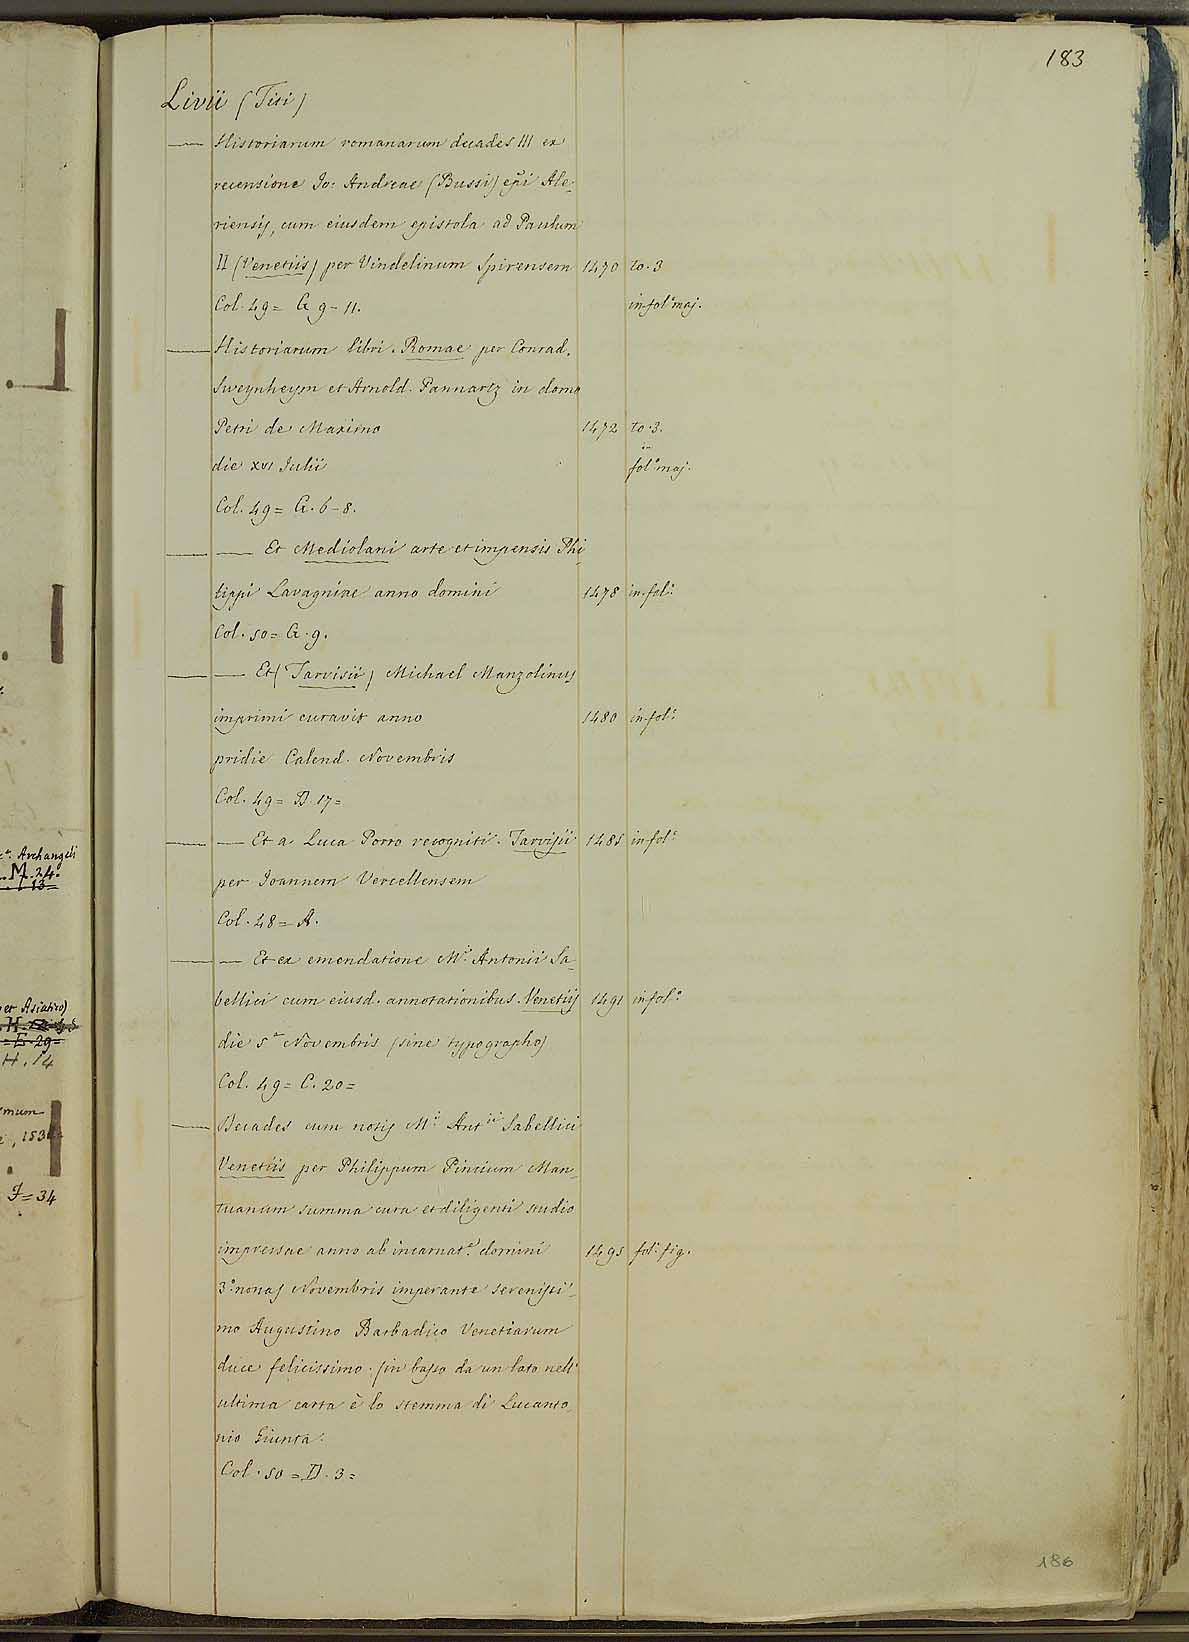 183
Livii (Titi)
— Historiarum romanarum decades III ex
recensione Jo: Andreae (Bussi) epĩ Ale-
riensis, cum eiusdem epistola ad Paulum
II (Venetiis) per Vindelinum Spirensem 1470 to. 3
Col. 49 = G 9 - 11. in fol.º maj.
— Historiarum libri. Romae per Conrad.
Sweynheym et Arnold. Pannartz in domo
Petri de Maximo 1472 to. 3.
die XVI Julii in fol.º maj.
Col. 49 = G. 6 - 8.
— — Et Mediolani arte et impensis Phi-
lippi Lavagniae anno domini 1478 in fol.º
Col. 50 = G. 9.
— — Et (Tarvisii) Michael Manzolinus
imprimi curavit anno 1480 in fol.º
pridie Calend. Novembris
Col. 49 = D. 17 =
— — Et a Luca Porro recogniti. Tarvisii 1485 in fol.º
per Joannem Vercellensem
Col. 48 = A.
— — Et ex emendatione M.i Antonii Sa-
bellici cum eiusd. annotationibus. Venetiis 1491 in fol.º
die 5.a Novembris (sine typographo)
Col. 49 = C. 20 =
— Decades cum notis M.i Ant.ii Sabellici
Venetiis per Philippum Pincium Man-
tuanum summa cura et diligenti studio
impressae anno ab incarnat.e domini 1495 fol.º fig.
3.º nonas Novembris imperante serenissi-
mo Augustino Barbadico Venetiarum
duce felicissimo. (in basso da un lato nell'
ultima carta è lo stemma di Lucanto-
nio Giunta.
Col. 50 = D. 3 =
186
Archangeli
M. 24.
13 =
et Asiatico)
H.
= E. 29 =
H. 14
J = 34